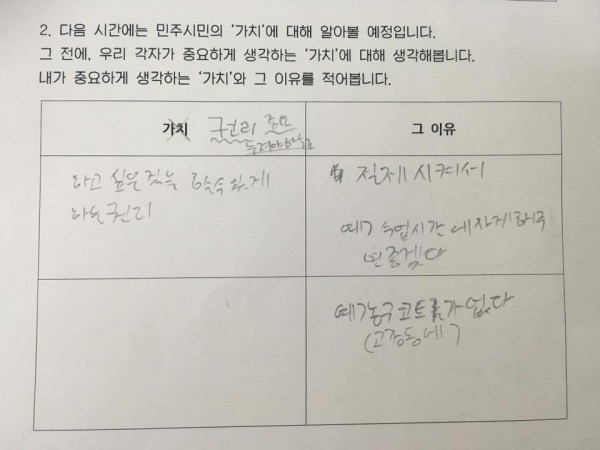 2. 다음 시간에는 민주시민의 '가치'에 대해 알아볼 예정입니다.
그 전에, 우리 각자가 중요하게 생각하는 '가치'에 대해 생각해봅니다.
내가 중요하게 생각하는 '가치'와 그 이유를 적어봅니다.
가치 권리
그 이유
하고 싶은 것을 할수 있게
하는 권리
절제 시켜서
예) 수업시간에 자게 해주
면 좋겠다
예) 농구코트가 없다